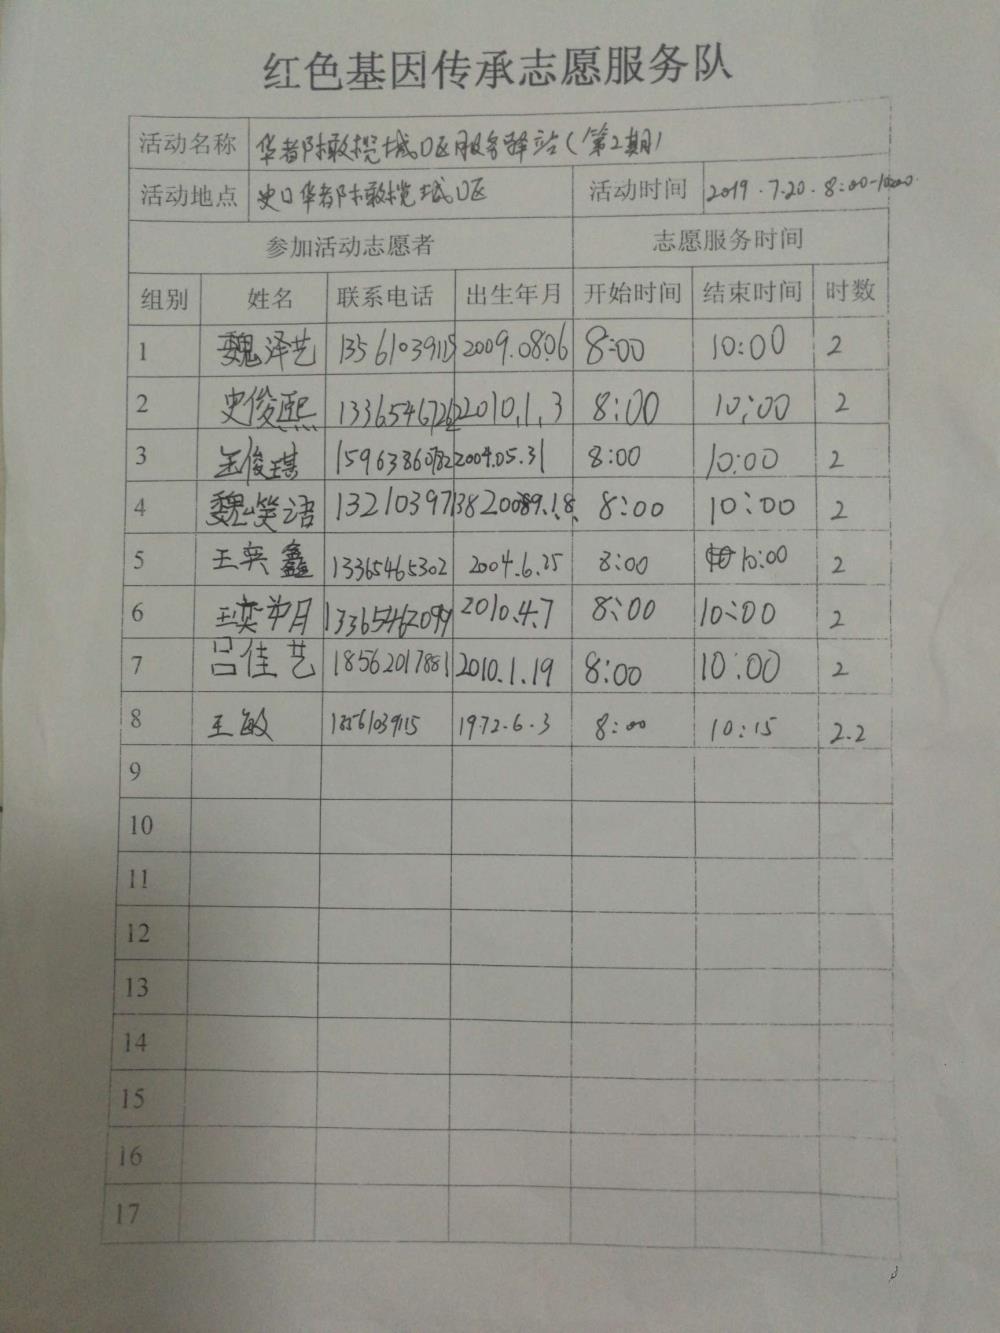 红色基因传承志愿服务队
活动名称 华都橄榄城口区服务驿站(第2期)
活动地点 史口华都橄榄城口区 活动时间 2019.7.20.8:00-10:00
参加活动志愿者 志愿服务时间
组别 姓名 联系电话 出生年月 开始时间 结束时间 时数
1 魏泽艺 13561039115 2009.08.06 8:00 10:00 2
2 史俊熙 13365467262 2010.1.3 8:00 10:00 2
3 王俊瑾 15963860782 2004.05.31 8:00 10:00 2
4 魏笑语 13210397138 2009.1.8 8:00 10:00 2
5 王奕鑫 13365465302 2004.6.25 8:00 10:00 2
6 王奕 2010.4.7 8:00 10:00 2
7 吕佳艺 18562017881 2010.1.19 8:00 10:00 2
8 王敏 18561039115 1972.6.3 8:00 10:15 2.2
9
10
11
12
13
14
15
16
17